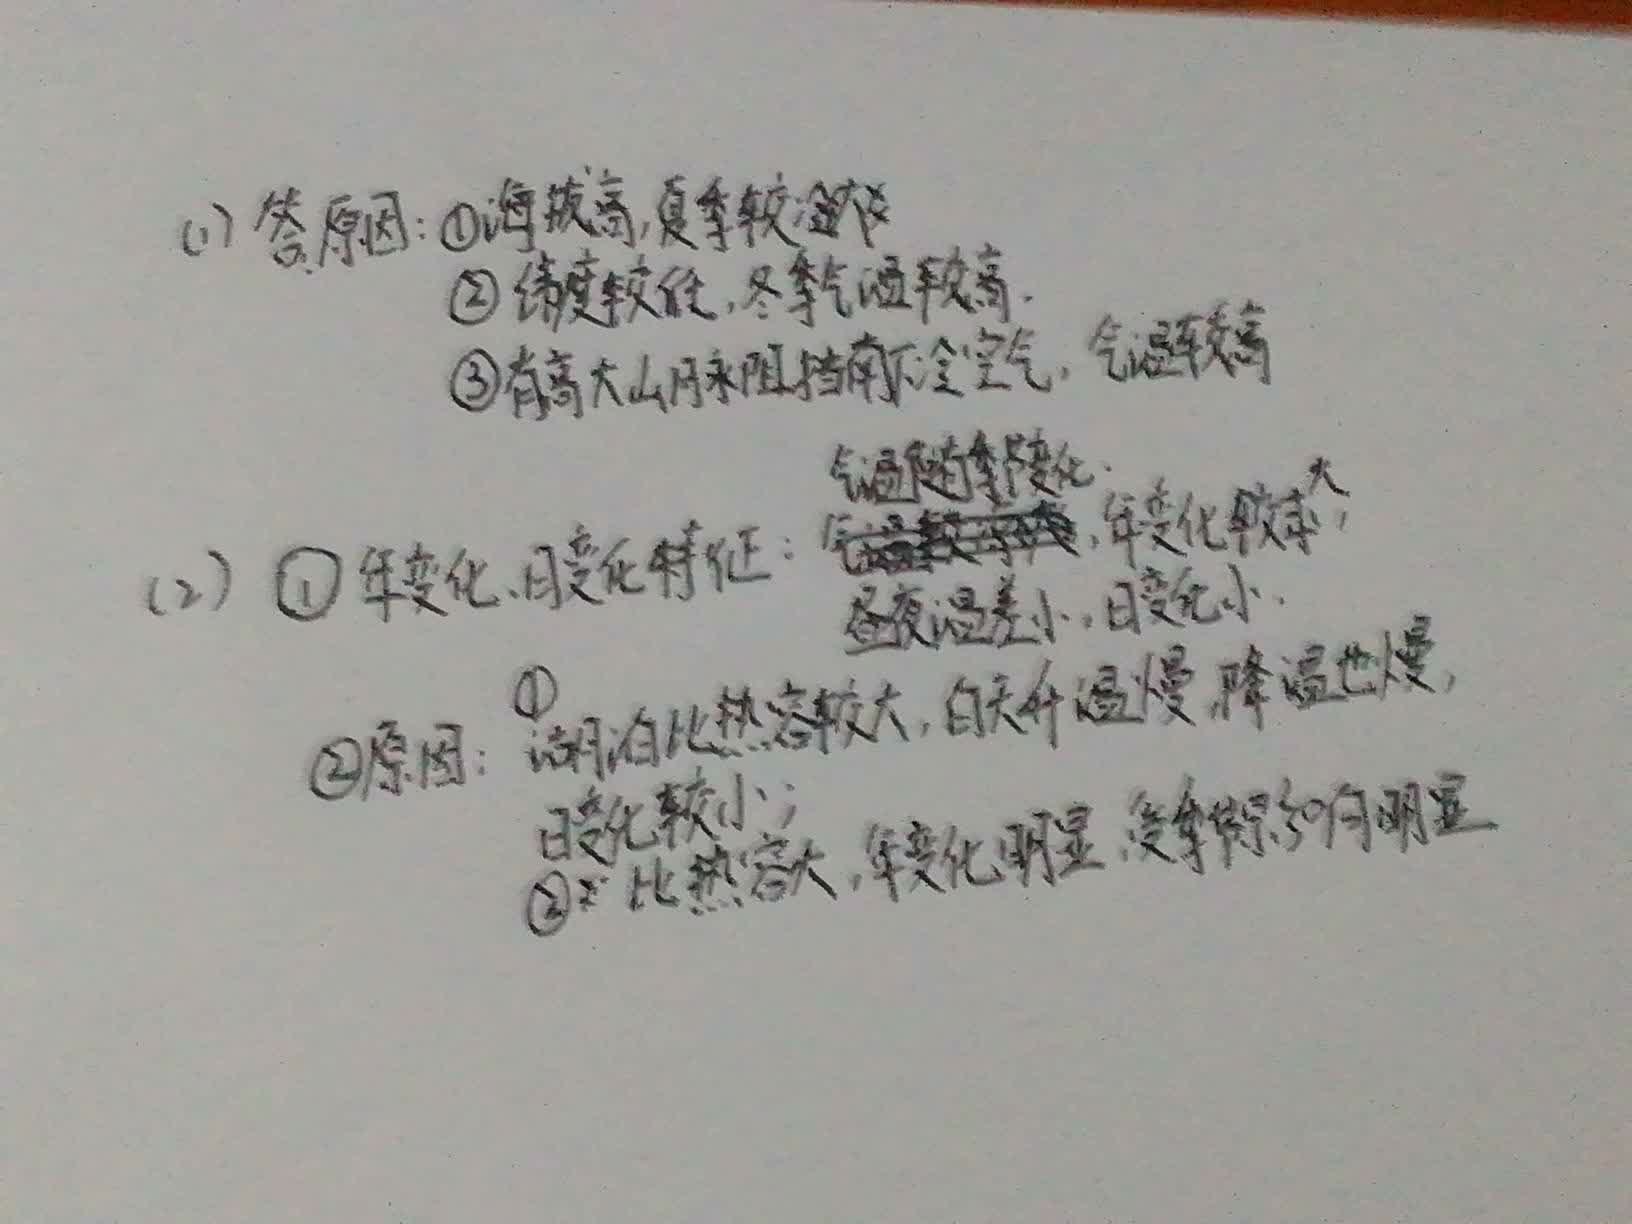 (1) 答原因：①海拔高，夏季较凉
②纬度较低，冬季气温较高.
③有高大山脉阻挡南下冷空气，气温较高
气温随季节变化.
(2) ①年变化、日变化特征：，年变化较大；
昼夜温差小，日变化小.
①
②原因：湖泊比热容较大，白天升温慢，降温也慢，
日变化较小；
② 比热容大，年变化明显，受季节影响明显